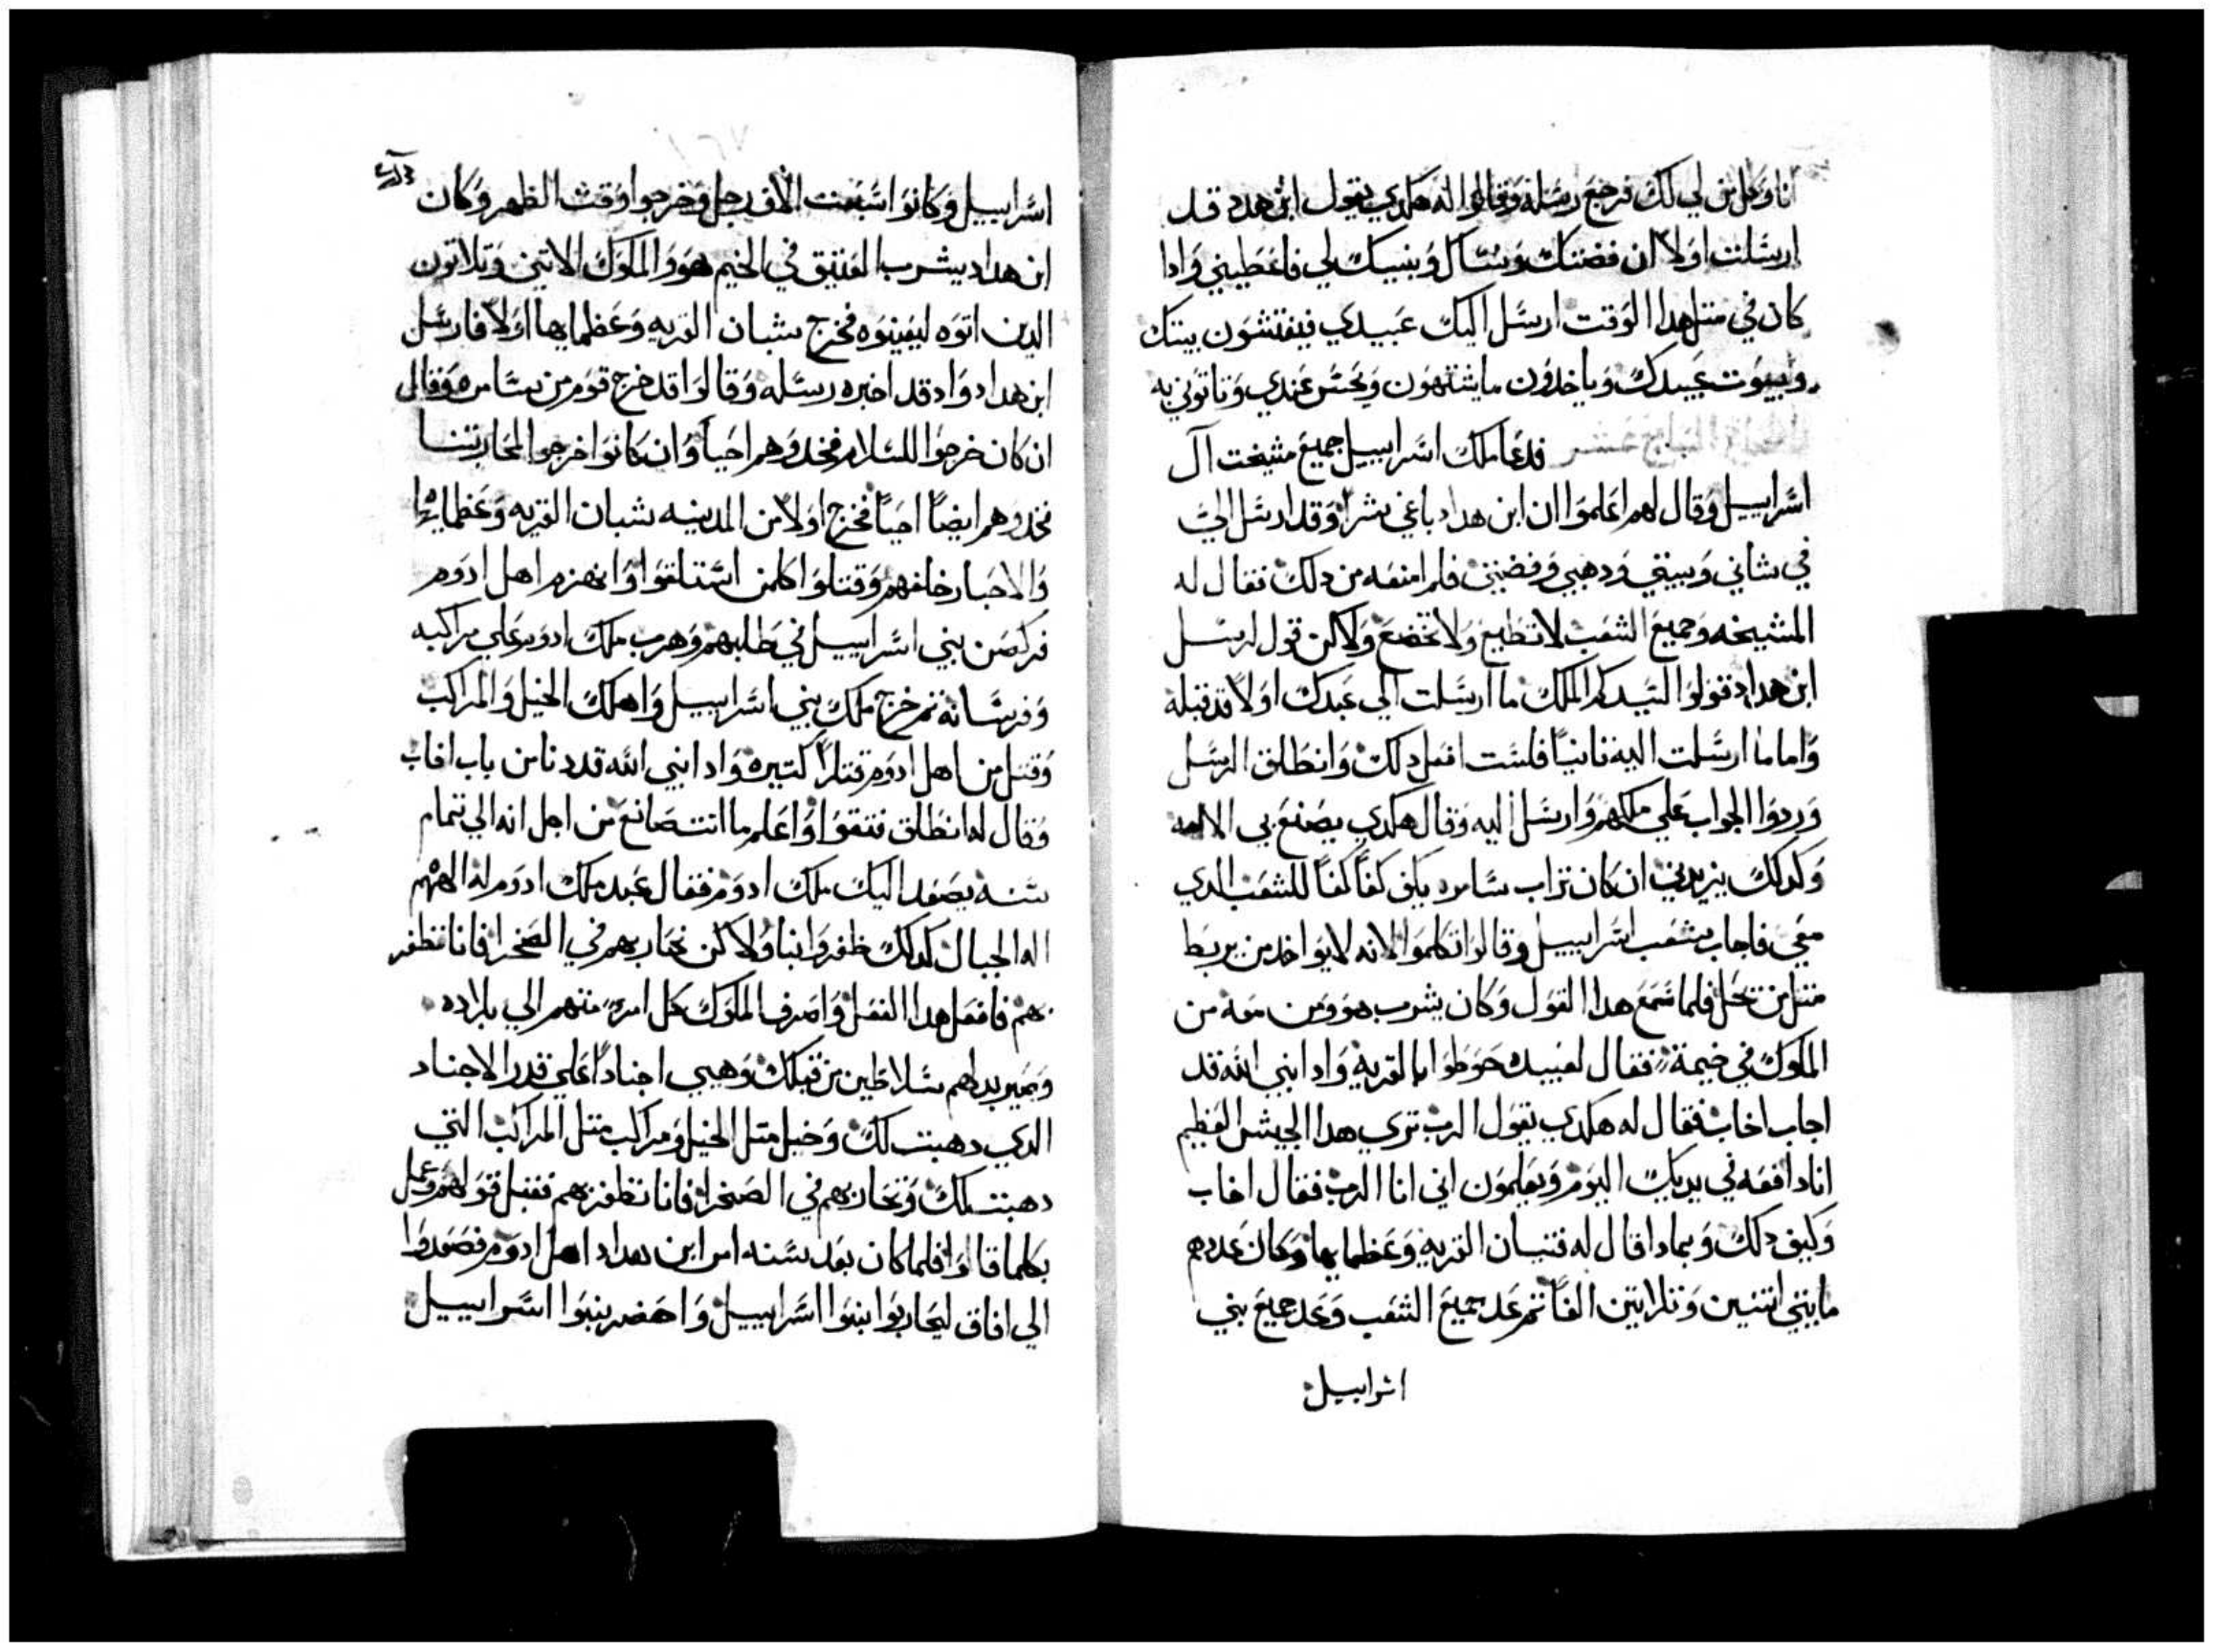 انا وكل من لي لك فرجع رسله وقالوا له هكدي يقول ابن هدد قد
ارسلت اولا ان فضتك ونساك وبنيك لي فاعطيني وادا
كان في متل هدا الوقت ارسل اليك عبيدي فيفتشون بيتك
وبيوت عبيدك وياخدون ما يشتهون ويحسن عندي وياتوني به
فدعا ملك اسراييل جميع مشيخت آل
اسراييل وقال لهم اعلموا ان ابن هداد باغي شرا وقد ارسل الي
في نساي وبيتي ودهبي وفضتي فلم امنعه من دلك فقال له
المشيخه وجميع الشعب لا تطيع ولا تخضع ولاكن قول لرسل
ابن هداد قولوا لسيدكم الملك ما ارسلت الي عبدك اولا قد قبله
واما ما ارسلت اليه تانيا فلست افعل دلك وانطلق الرسل
وردوا الجواب علي ملكهم وارسل اليه وقال هكدي يصنع بي الالهه
وكدلك يزيدني ان كان تراب سامره يكفي كفا كفا للشعب الدي
معي فاجاب شعب اسراييل وقالوا تكلموا لانه لا يواخد من يربط
متل من يحل فلما سمع هدا القول وكان يشرب هو ومن معه من
الملوك في خيمة فقال لعبيده حوطوا بالقريه وادا نبي الله قد
اجاب اخاب فقال له هكدي يقول الرب تري هدا الجيش العظيم
انا دافعه في يديك اليوم ويعلمون اني انا الرب فقال اخاب
وكيف دلك وبمادا قال له فتيان القريه وعظمايها وكان عددهم
مايتي اتنين وتلاتين الفا تم عد جميع الشعب وعد جميع بني
اسراييل
اسراييل وكانوا سبعت الاف رجل وخرجوا وقت الظهر وكان
ابن هداد يشرب العتيق في الخيم هو والملوك الاتنين وتلاتون
الدين اتوه ليعينوه فخرج شبان القريه وعظمايها اولا فارسل
ابن هداد واد قد اخبره رسله وقالوا قد خرج قوم من سامره وقال
ان كان خرجوا للسلام فخدوهم احيا وان كانوا خرجوا لمحاربتنا
فخدوهم ايضا احيا فخرج اولا من المدينه شبان القريه وعظمايها
والاحبار خلفهم وقتلوا كلمن استلقوا وانهزم اهل ادوم
فركضن بني اسراييل في طلبهم وهرب ملك ادوم علي مراكبه
وفرسانه تم خرج ملك بني اسراييل واهلك الخيل والمراكب
وقتل من اهل ادوم قتلا كتيره وادا نبي الله قد دنا من باب اخاب
وقال له انطلق فتقوا واعلم ما انت صانع من اجل انه الي تمام
سنه يصعد اليك ملك ادوم فقال عبد ملك ادوم له الههم
اله الجبال كدلك ظفروا بنا ولاكن نحاربهم في الصحرا فانا نظفر
بهم فافعل هدا الفعل واصرف الملوك كل امرء منهم الي بلاده
وصير بدلهم سلاطين من قبلك وهيي اجنادا علي قدر الاجناد
الدي دهبت لك وخيل متل الخيل ومراكب متل المراكب التي
دهبت لك ونحاربهم في الصحرا فانا نظفر بهم فقبل قولهم وعمل
بكلما قالوا فلما كان بعد سنه امر ابن هداد اهل ادوم فصعدوا
الي افاق ليحاربوا بنوا اسراييل واحضر بنوا اسراييل